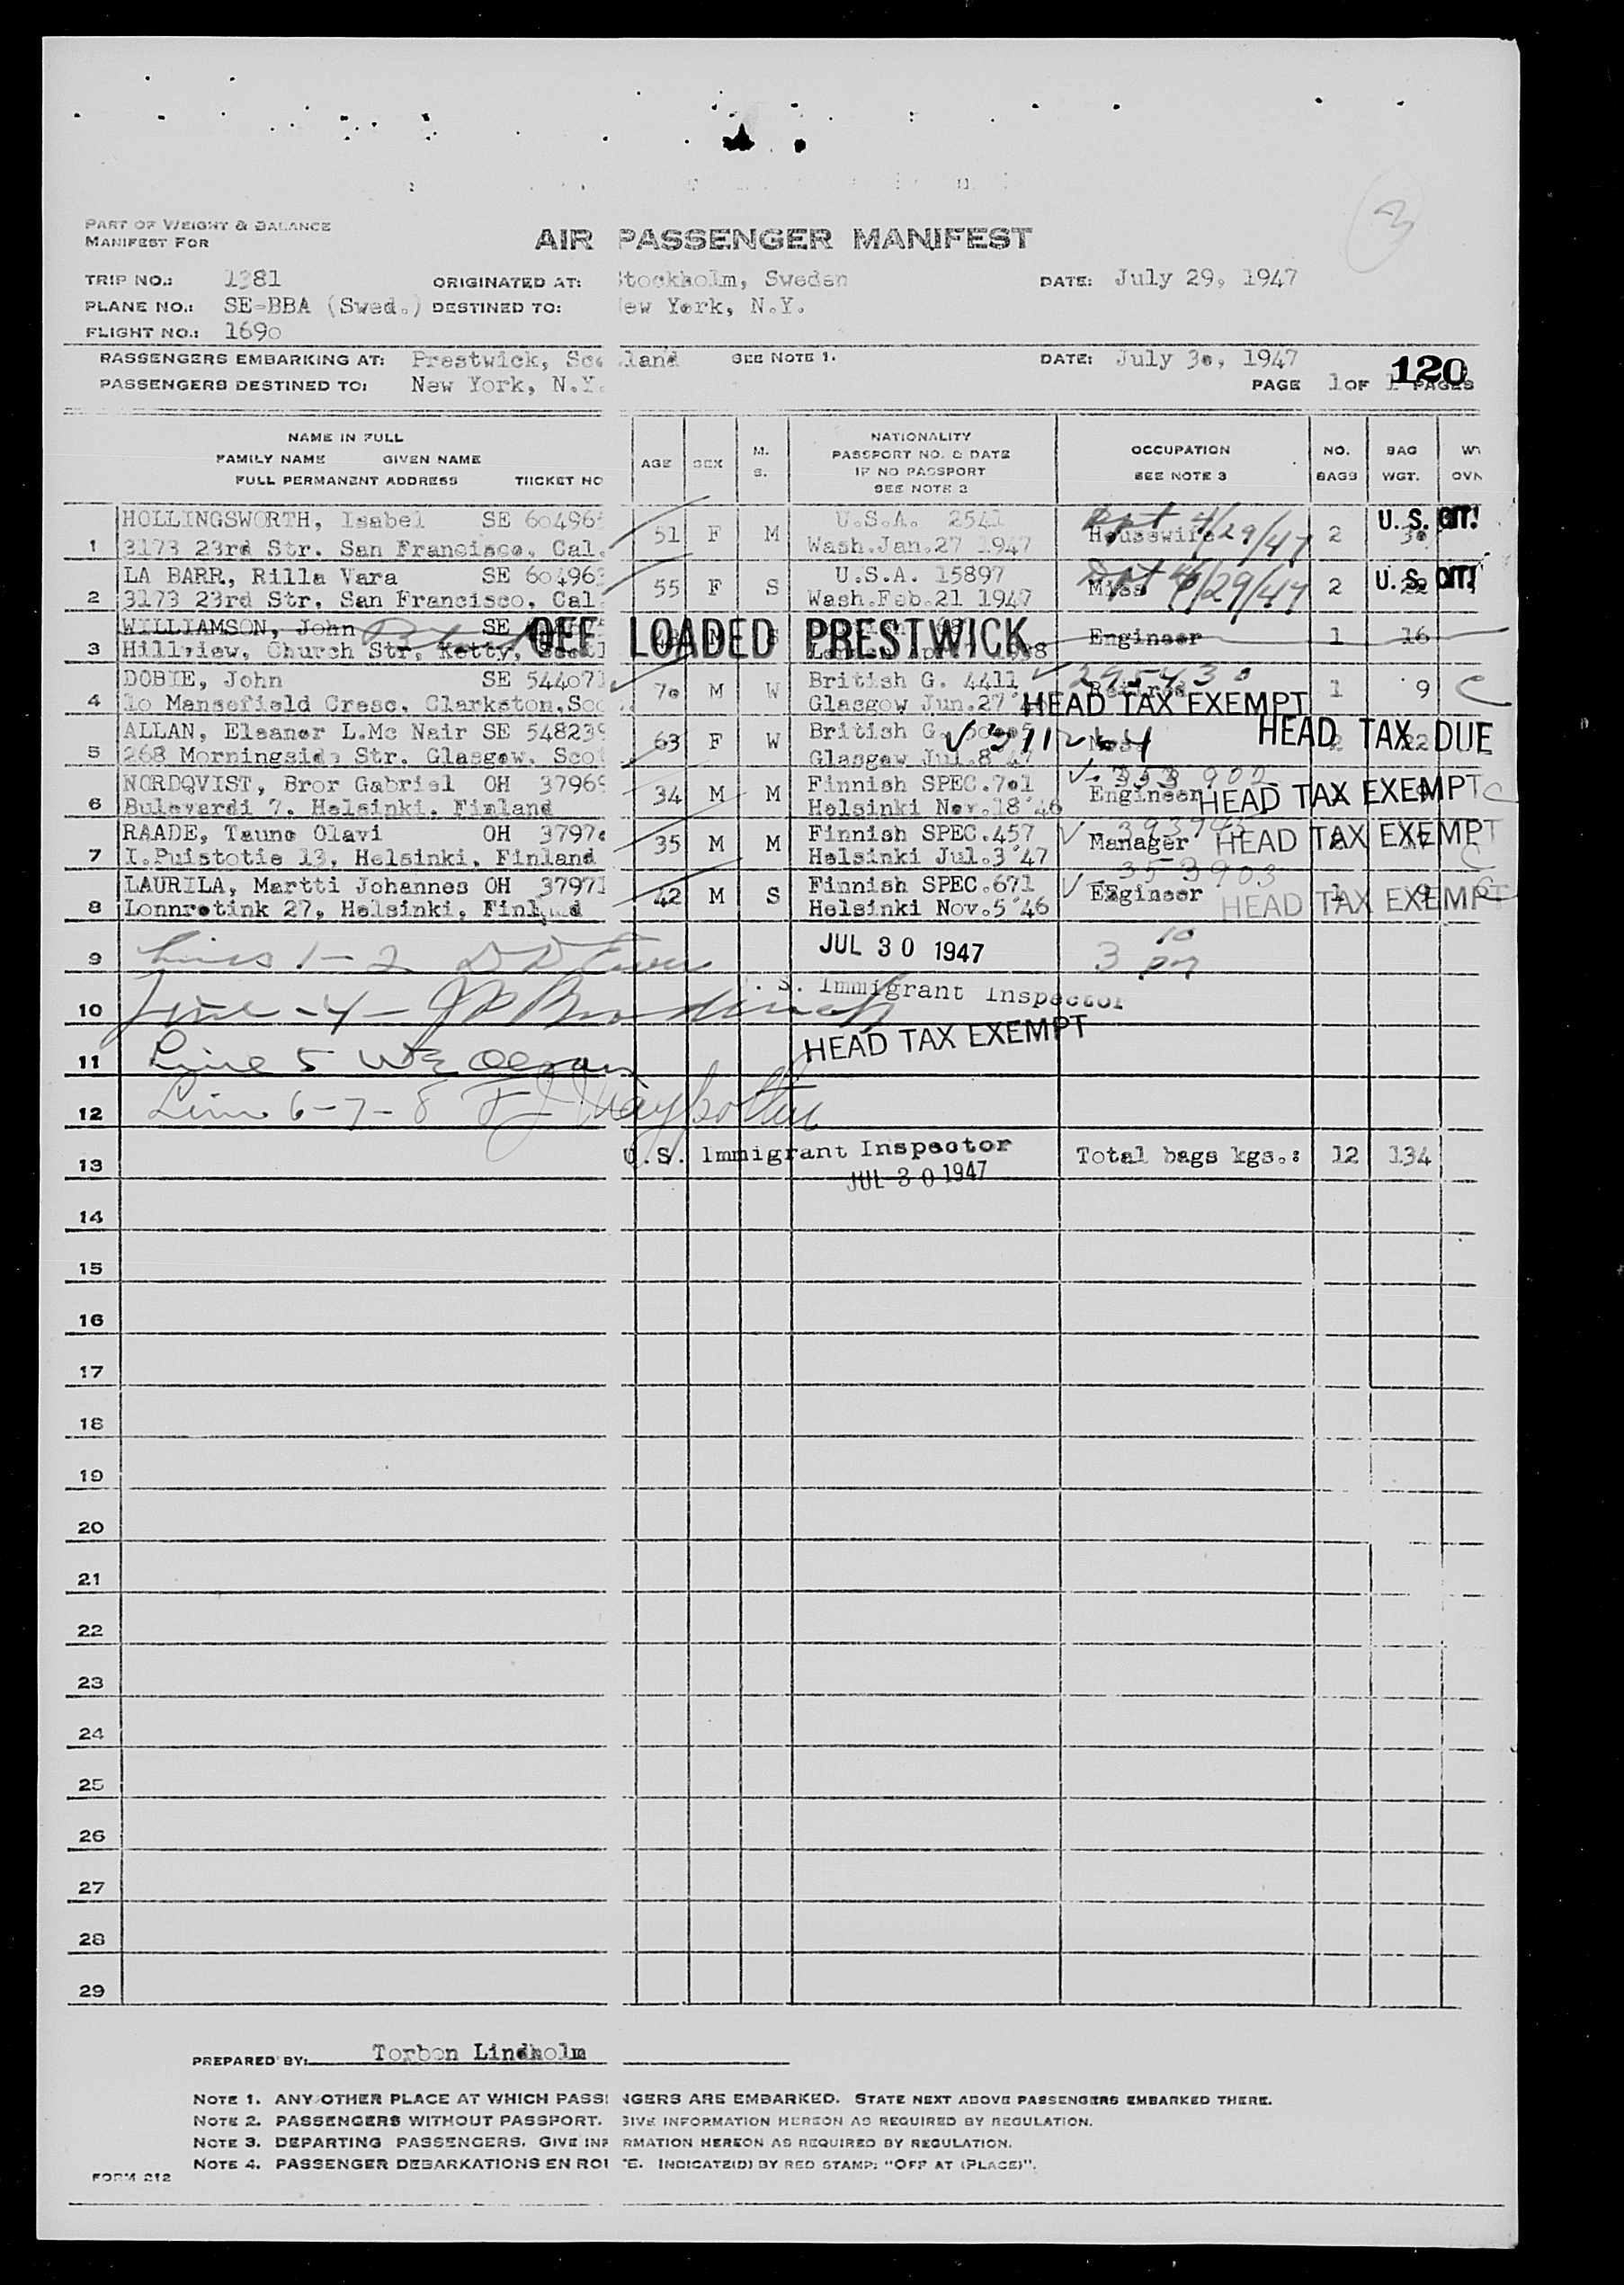 3
PART OF WEIGHT & BALANCE
MANIFEST FOR
AIR PASSENGER MANIFEST
TRIP NO.: 1381 ORIGINATED AT: Stockholm, Sweden DATE: July 29, 1947
PLANE NO.: SE-BBA (Swed.) DESTINED TO: New York, N.Y.
FLIGHT NO.: 1690
PASSENGERS EMBARKING AT: Prestwick, Scotland SEE NOTE 1. DATE: July 30, 1947
120
PASSENGERS DESTINED TO: New York, N.Y. PAGE 1 OF 1 PAGES
NAME IN FULL
FAMILY NAME GIVEN NAME
FULL PERMANENT ADDRESS TIICKET NO
AGE SEX M. S.
NATIONALITY
PASSPORT NO. & DATE
IF NO PASSPORT
SEE NOTE 2
OCCUPATION
SEE NOTE 3
NO. BAGS
BAG WGT.
HOLLINGSWORTH, Isabel SE 60496 U.S.A. 2541 Dpt 4/29/47 U.S. CIT!
1 3173 23rd Str. San Francisco, Cal. 51 F M Wash.Jan.27 1947 Housewife 2 30
LA BARR, Rilla Vara SE 60496 U.S.A. 15897 Dpt 4/29/47 U.S. CIT!
2 3173 23rd Str, San Francisco, Cal 55 F S Wash.Feb.21 1947 Miss 2
WILLIAMSON, John SE OFF LOADED PRESTWICK
3 Hillview, Church Str, Ketty, Engineer 1 16
DOBIE, John SE 54407 British G. 4411 295430
4 1o Mansefield Cresc. Clarkston, 7o M W Glasgow Jun.27 Retired 1 9 C
HEAD TAX EXEMPT
ALLAN, Eleanor L.Mc Nair SE 54823 British G. HEAD TAX DUE
5 268 Morningside Str. Glasgow. Scot 63 F W Glasgow Jul.8'47
NORDQVIST, Bror Gabriel OH 3796 Finnish SPEC.7o1
6 Bulevardi 7. Helsinki. Finland 34 M M Helsinki Nov.18'46 Engineer HEAD TAX EXEMPT C
RAADE, Tauno Olavi OH 3797 Finnish SPEC.457
7 I.Puistotie 13, Helsinki, Finland 35 M M Helsinki Jul.3'47 Manager HEAD TAX EXEMPT C
LAURILA, Martti Johannes OH 37971 Finnish SPEC.671 353903
8 Lonnrotink 27, Helsinki, Finland 42 M S Helsinki Nov.5'46 Engineer 1 9 HEAD TAX EXEMPT
9 Lines 1-2 JUL 30 1947 3 10 pm
U. S. Immigrant Inspector
10 Line -4-
HEAD TAX EXEMPT
11 Line 5
12 Line 6-7-8
U.S. Immigrant Inspector
13 Total bags kgs.: 12 134
JUL 30 1947
14
15
16
17
18
19
20
21
22
23
24
25
26
27
28
29
PREPARED BY: Torben Lindholm
NOTE 1. ANY OTHER PLACE AT WHICH PASSENGERS ARE EMBARKED. STATE NEXT ABOVE PASSENGERS EMBARKED THERE.
NOTE 2. PASSENGERS WITHOUT PASSPORT. GIVE INFORMATION HEREON AS REQUIRED BY REGULATION.
NOTE 3. DEPARTING PASSENGERS. GIVE INFORMATION HEREON AS REQUIRED BY REGULATION.
NOTE 4. PASSENGER DEBARKATIONS EN ROUTE. INDICATE(D) BY RED STAMP: "OFF AT (PLACE)".
FORM 212